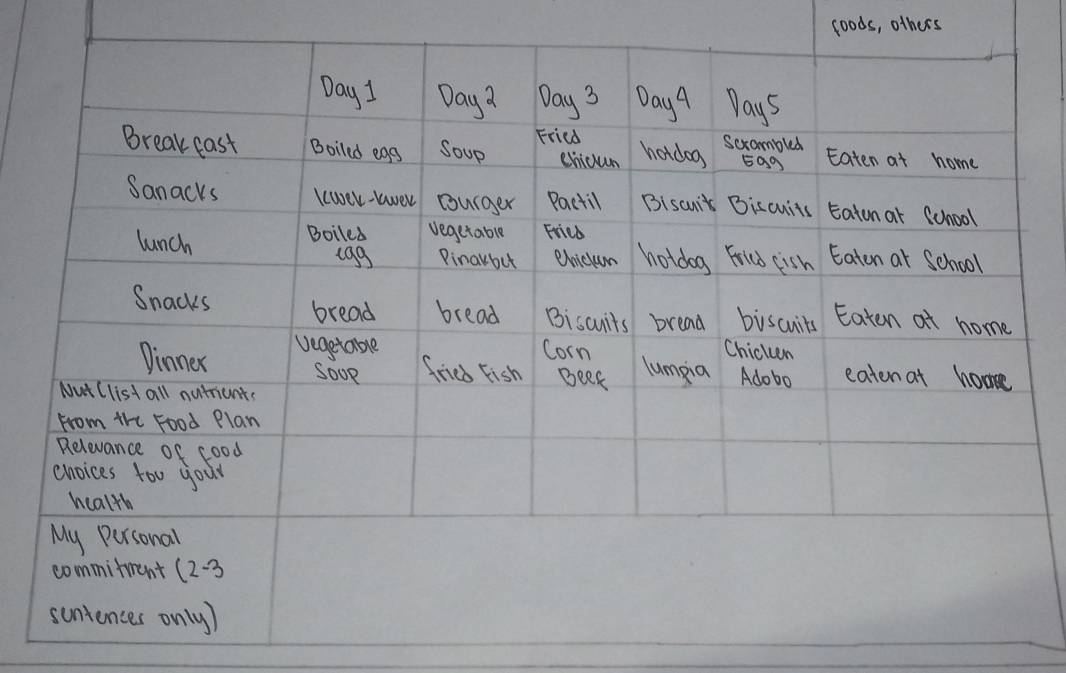 foods, others
Day 1 Day 2 Day 3 Day 4 Day 5
Breakfast Boiled egg Soup Fried chicken hotdog Scrambled Egg Eaten at home
Sanacks Kwek-kwek Burger Pactil Biscuits Biscuits Eaten at School
lunch Boiled egg Vegetable Pinakbet Fried chicken hotdog Fried fish Eaten at School
Snacks bread bread Biscuits bread biscuits Eaten at home
Dinner Vegetable Soup fried Fish Corn Beef lumpia Chicken Adobo eaten at home
Nut (list all nutrients
From the Food Plan
Relevance of food
choices for your
health
My Personal
commitment (2-3
sentences only)